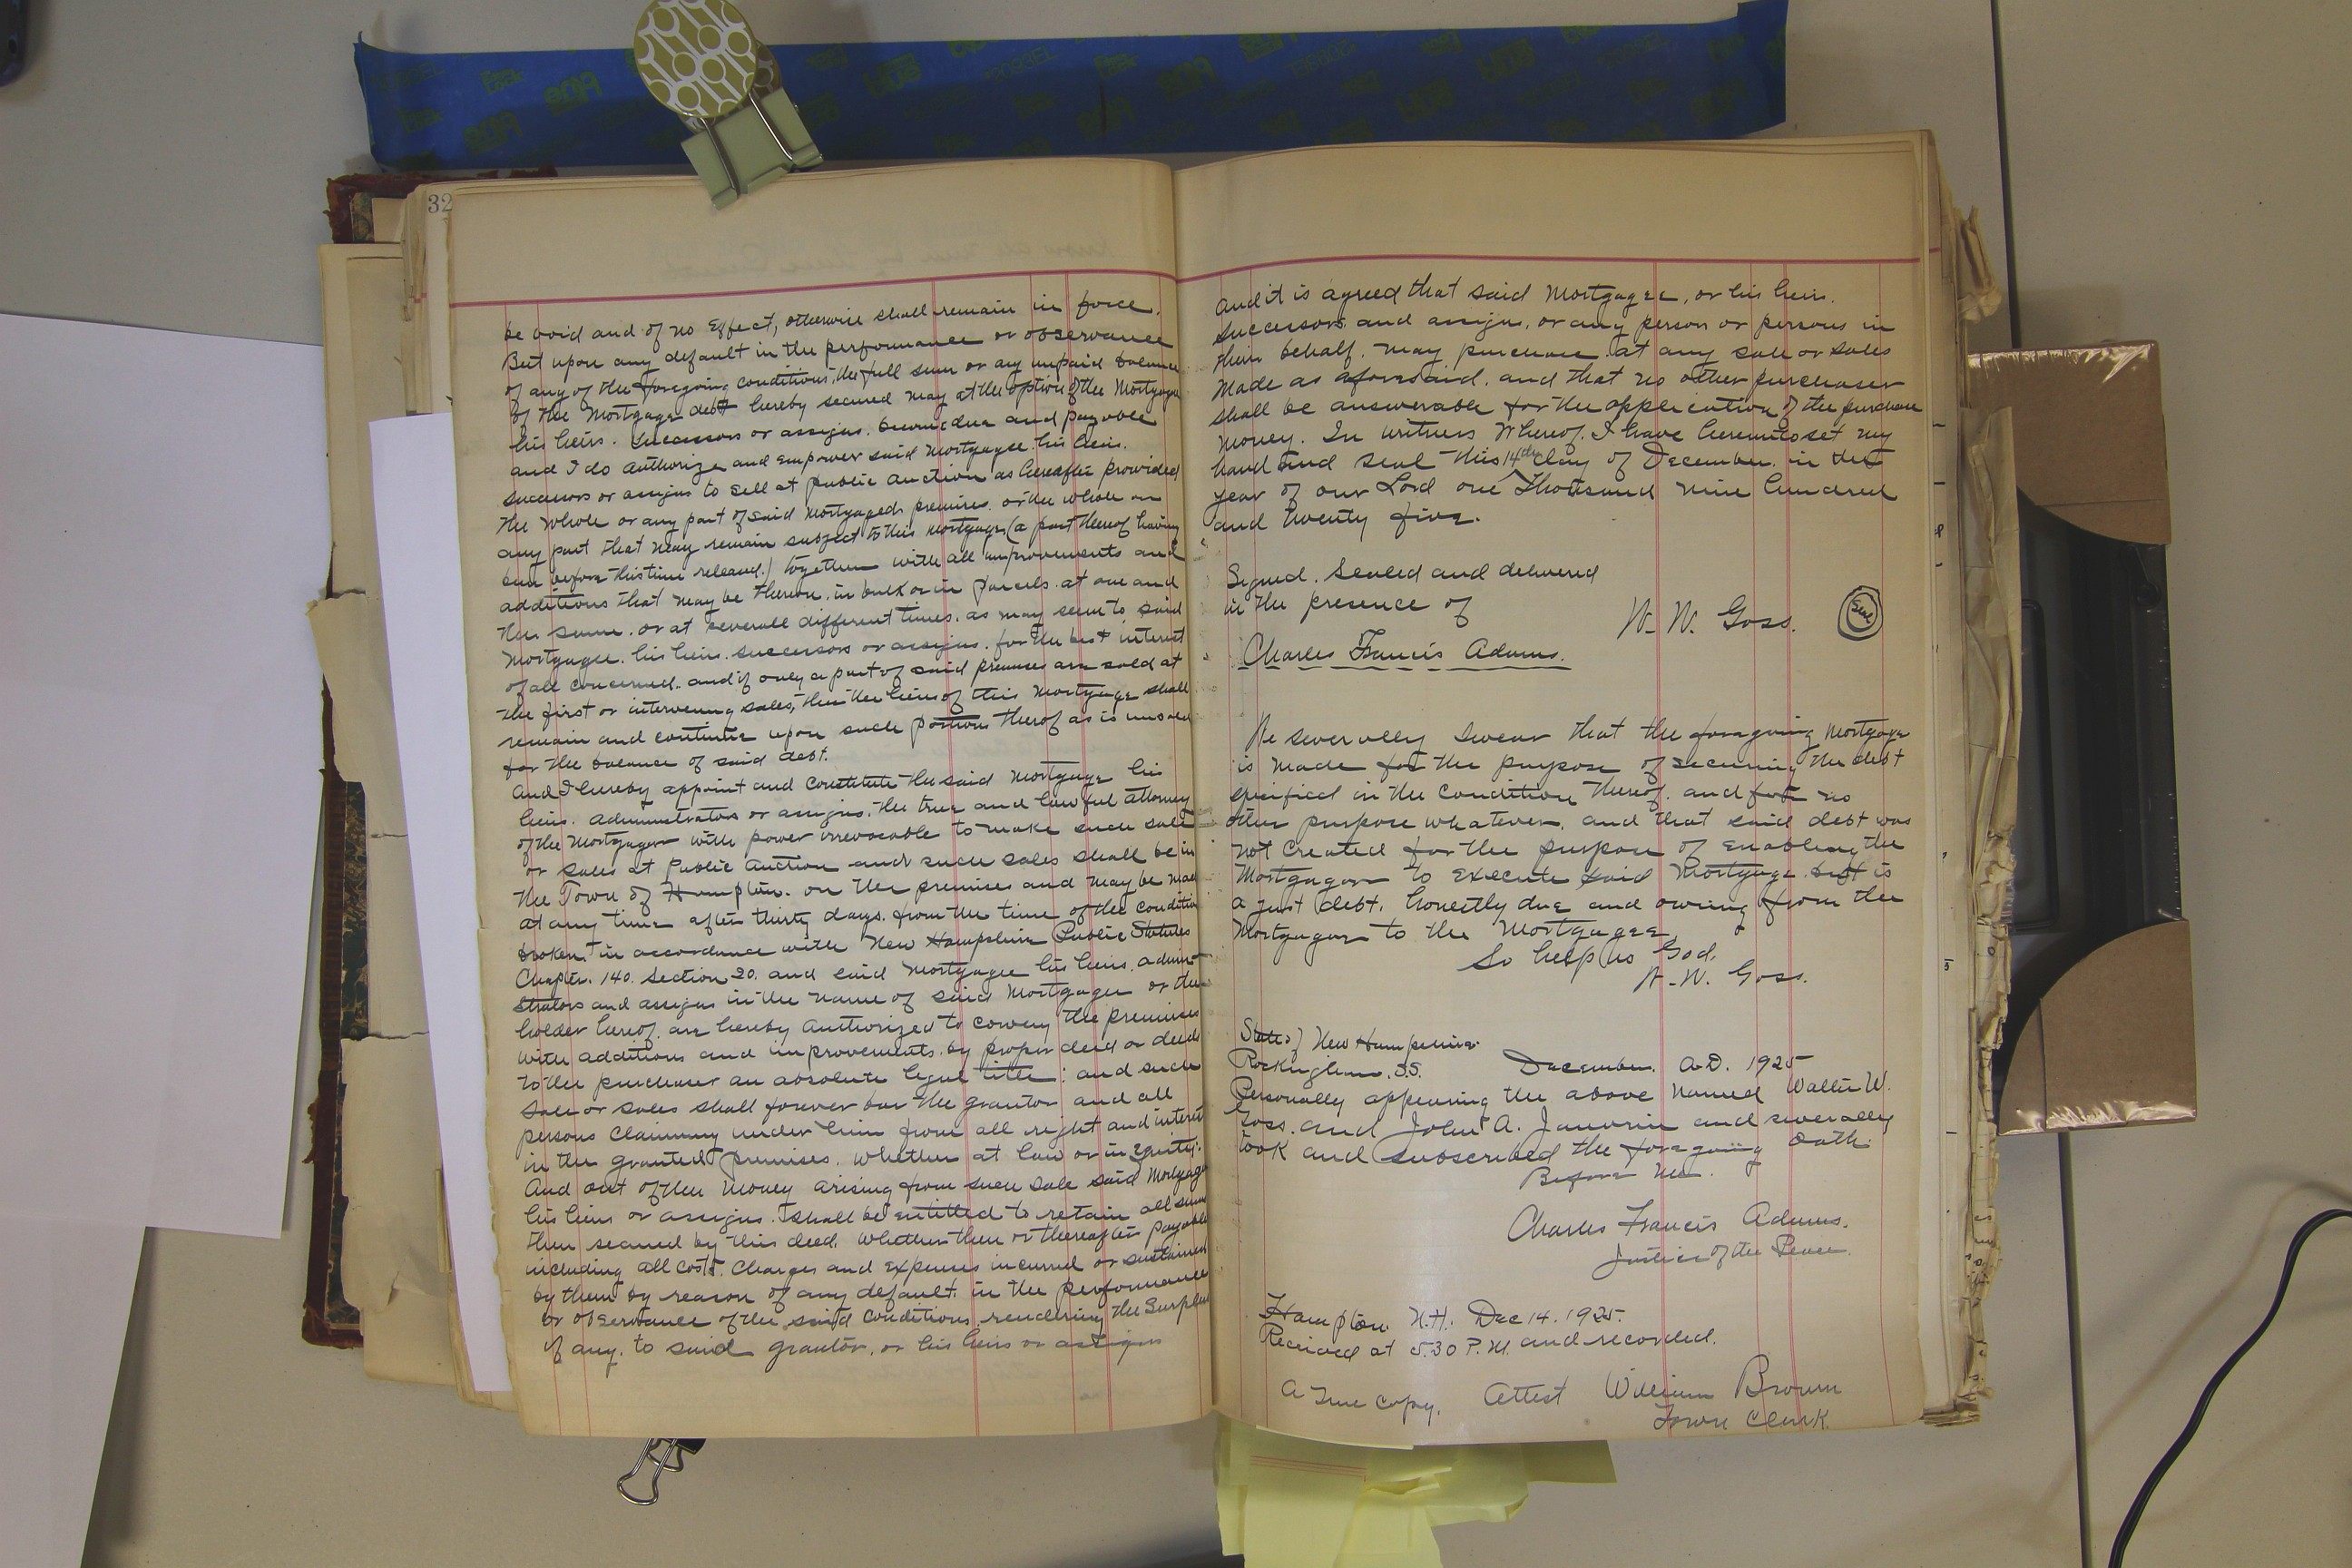 32
be void and of no effect, otherwise shall remain in force.
But upon any default in the performance or observance
of any of the foregoing conditions, the full sum or any unpaid balance
of the Mortgage debt hereby secured may at the option of the Mortgagee
his heirs. successors or assigns. become due and payable
and I do authorize and empower said Mortgagee. his heirs.
successors or assigns to sell at public auction as hereafter provided
the whole or any part of said Mortgaged premises. or the whole or
any part that may remain subject to this mortgage (a part thereof having
been before this time released.) together with all improvements and
additions that may be thereon. in bulk or in parcels. at one and
the same. or at severall different times. as may seem to said
Mortgagee. his heirs. successors or assigns. for the best interest
of all concerned. and if only a part of said premises are sold at
the first or intervening sales, then the liens of this Mortgage shall
remain and continue upon such portions therof as is unsold
for the balance of said debt.
And I hereby appoint and constitute the said Mortgagee his
heirs. administrators or assigns. the true and lawful attorney
of the Mortgagor with power irrevocable to make such sale
or sales at Public Auction and such sales shall be in
the Town of Hampton. on the premises and may be made
at any time after thirty days. from the time of the condition
broken. in accordance with New Hampshire Public Statutes
Chapter. 140. Section 20. and said Mortgagee his heirs. admin-
strators and assigns in the name of said Mortgagor or the
holder hereof. are hereby authorized to convey the premises
with additions and improvements. by proper deed or deeds
to the purchaser an absolute legal title: and such
sale or sales shall forever bar the grantor and all
persons claiming under him from all right and interest
in the granted premises. whether at law or in equity.
And out of the money arising from such sale said Mortgagee
his heirs or assigns. shall be entitled to retain all sums
then secured by this deed. whether then or thereafter payable
including all costs. charges and expenses incurred or sustained
by them by reason of any default. in the performance
or observance of the said conditions rendering the Surplus
if any. to said grantor, or his heirs or assigns
and it is agreed that said Mortgagee, or his heirs.
successors and assigns. or any person or persons in
their behalf. may purchase at any sale or sales
made as aforesaid. and that no other purchaser
shall be answerable for the application of the purchase
money. In witness Whereof. I have hereunto set my
hand and seal this 14th day of December. in the
year of our Lord one Thousand nine hundred
and twenty five.
Signed. Sealed and delivered
in the presence of
W. W. Goss. Seal
Charles Francis Adams.
We severally swear that the foregoing Mortgage
is made for the purpose of securing the debt
specified in the condition thereof. and for no
other purpose whatever. and that said debt was
not created for the purpose of enabling the
Mortgagor to execute said Mortgage. but is
a just debt. honestly due and owing from the
Mortgagor to the Mortgagee
So help us God.
W. W. Goss.
State of New Hampshire
Rockingham. SS. December. A.D. 1925
Personally appearing the above named Walter W.
Goss. and John A. Janvrin and severally
took and subscribed the foregoing oath.
Before me.
Charles Francis Adams.
Justice of the Peace.
Hampton. N.H. Dec 14. 1925.
Received at 5.30 P.M. and recorded.
A True Copy. Attest William Brown
Town Clerk.